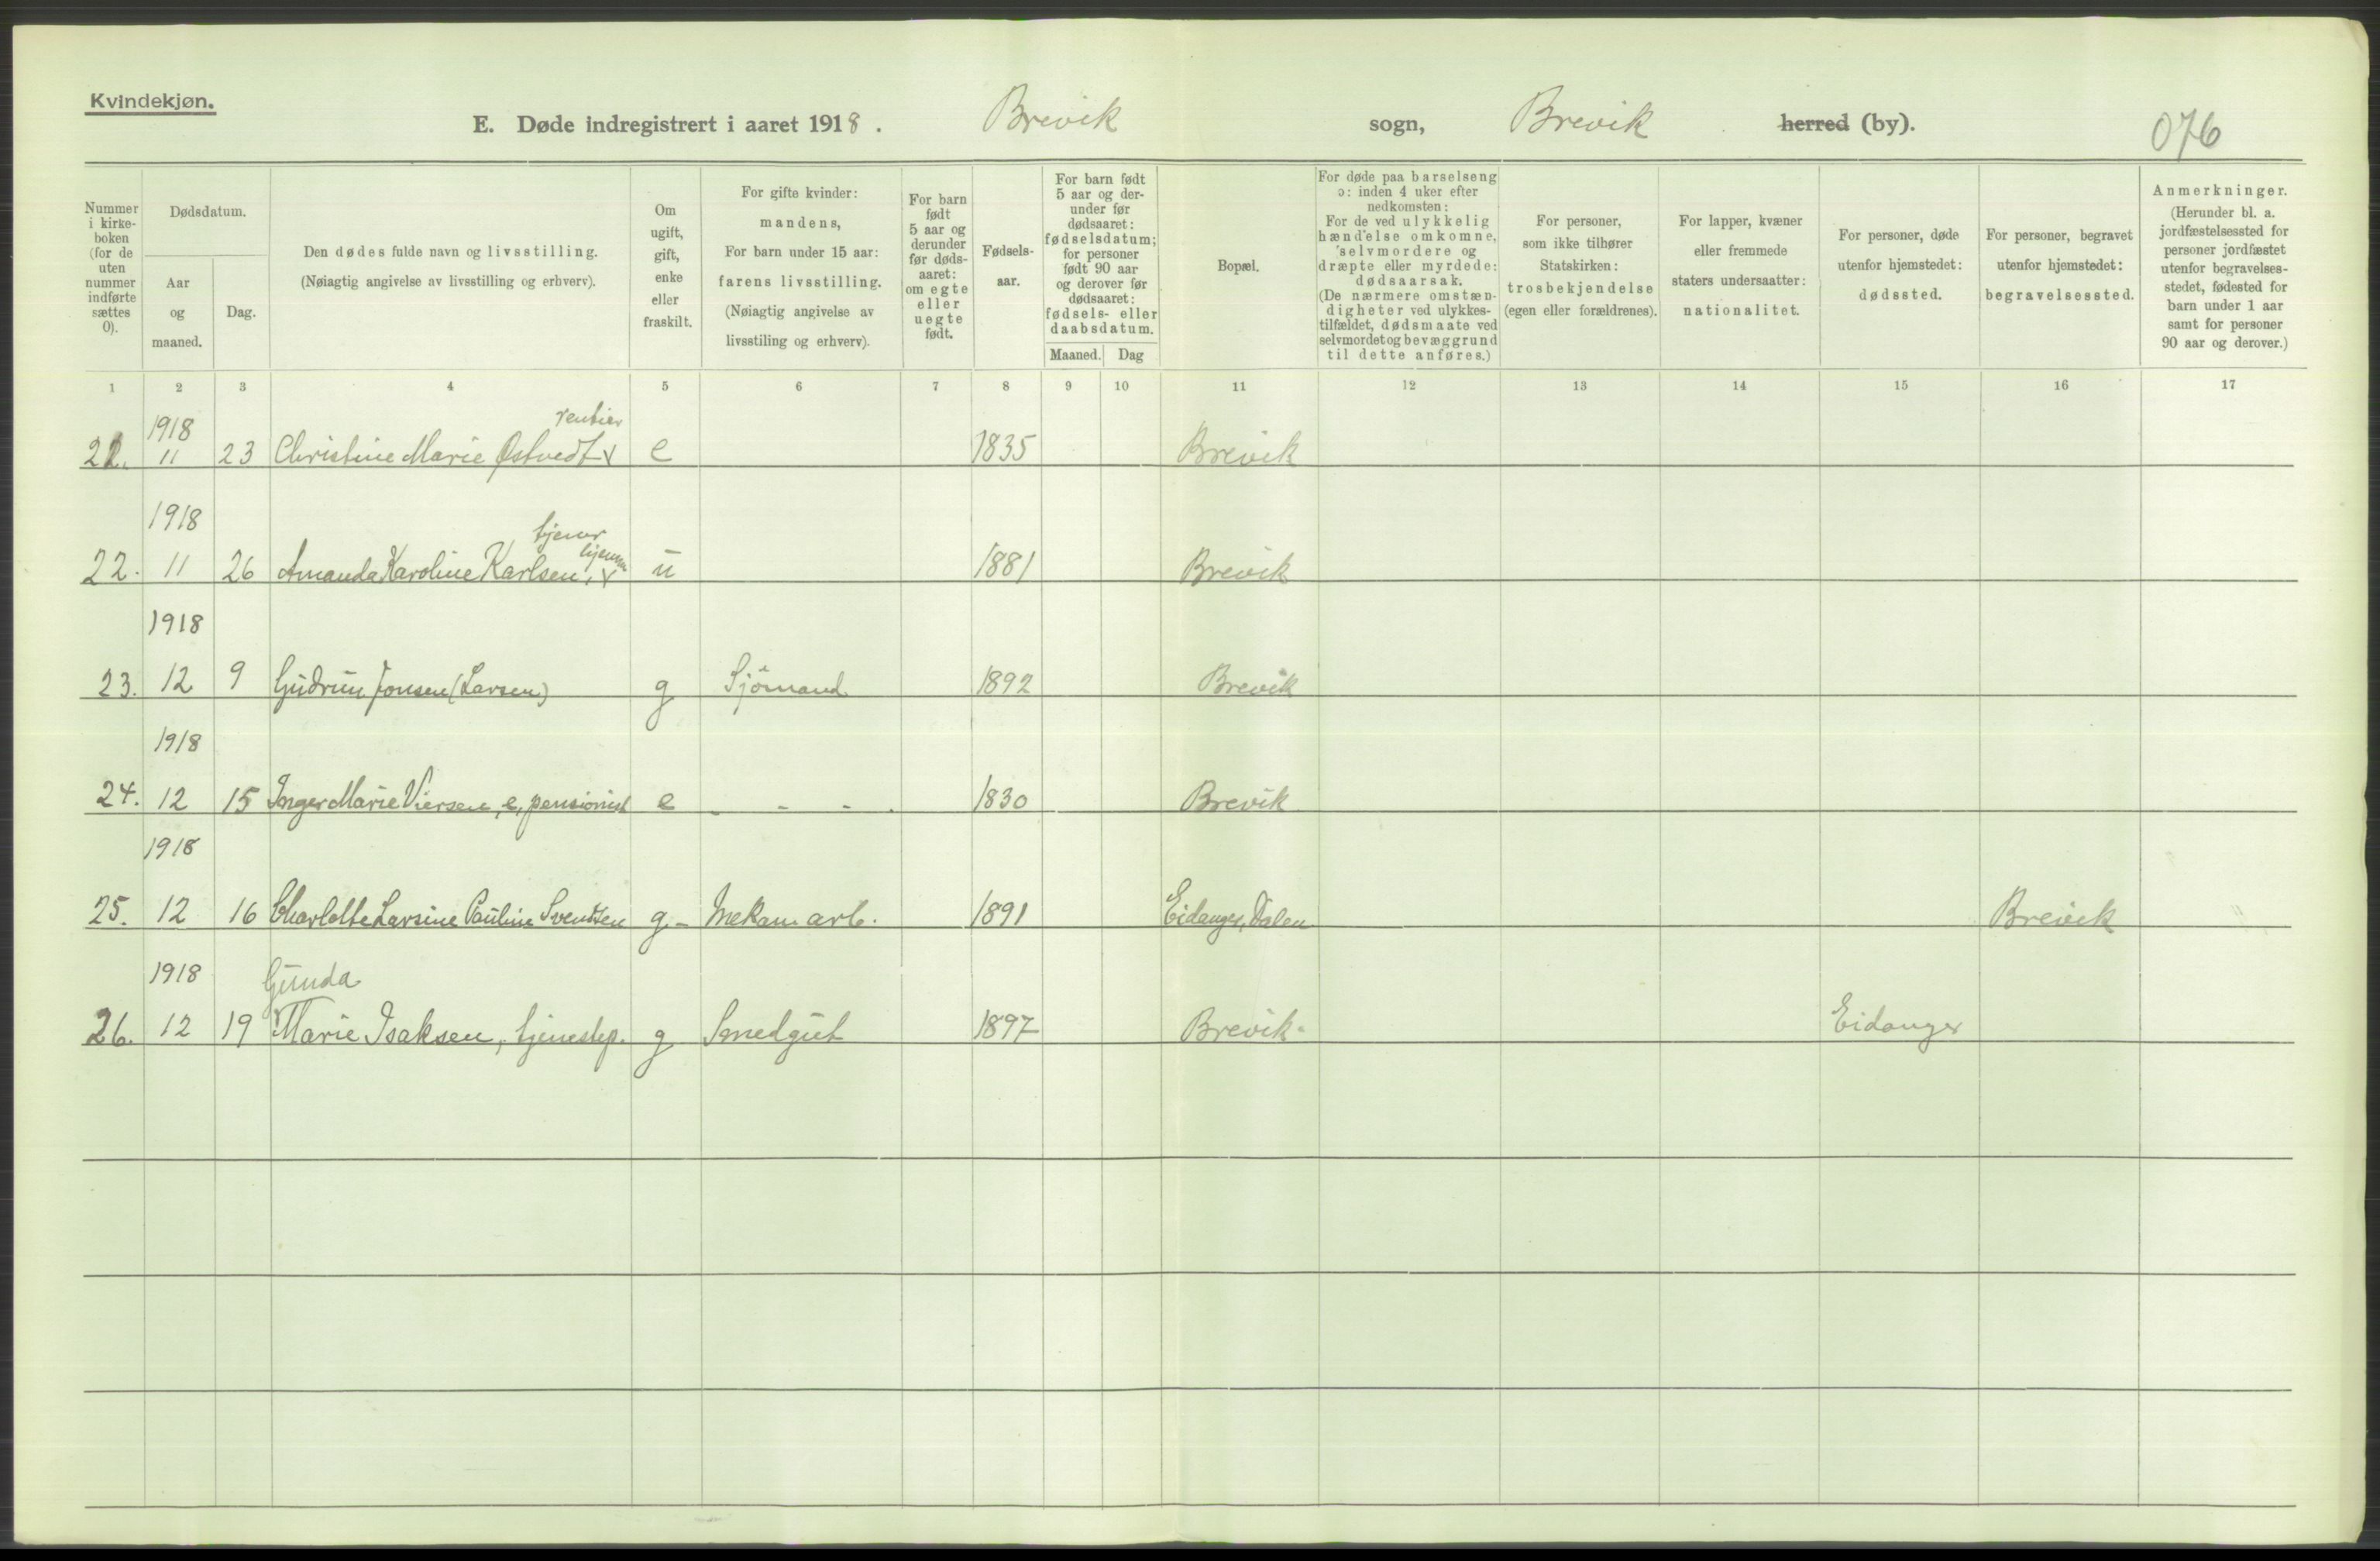 Kvindekjøn.
E. Døde indregistrert i aaret 1918. Brevik sogn, Brevik herred (by). 076
Nummer i kirke-boken (for de uten nummer indførte sættes 0).
Dødsdatum.
Aar og maaned.
Dag.
Den dødes fulde navn og livsstilling.
(Nøiagtig angivelse av livsstilling og erhverv).
Om ugift, gift, enke eller fraskilt.
For gifte kvinder: mandens,
For barn under 15 aar: farens livsstilling.
(Nøiagtig angivelse av livsstiling og erhverv).
For barn født 5 aar og derunder før døds-aaret: om egte eller uegte født.
Fødsels-aar.
For barn født 5 aar og der-under før dødsaaret: fødselsdatum; for personer født 90 aar og derover før dødsaaret: fødsels- eller daabsdatum.
Maaned. Dag
Bopæl.
For døde paa barselseng ɔ: inden 4 uker efter nedkomsten:
For de ved ulykkelig hændelse omkomne, selvmordere og dræpte eller myrdede: dødsaarsak.
(De nærmere omstæn-digheter ved ulykkes-tilfældet, dødsmaate ved selvmordet og bevæggrund til dette anføres.)
For personer, som ikke tilhører Statskirken: trosbekjendelse (egen eller forældrenes).
For lapper, kvæner eller fremmede staters undersaatter: nationalitet.
For personer, døde utenfor hjemstedet: dødssted.
For personer, begravet utenfor hjemstedet: begravelsessted.
Anmerkninger.
(Herunder bl. a. jordfæstelsessted for personer jordfæstet utenfor begravelses-stedet, fødested for barn under 1 aar samt for personer 90 aar og derover.)
1 2 3 4 5 6 7 8 9 10 11 12 13 14 15 16 17
1918 rentier
21. 11 23 Christine Marie Østvedt e 1835 Brevik
1918 tjener hjemme
22. 11 26 Amanda Karoline Karlsen, u 1881 Brevik
1918
23. 12 9 Gudrun Jonsen (Larsen) g Sjömand 1892 Brevik
1918
24. 12 15 Inger Marie Viersen, e, pensionist e - - - . 1830 Brevik
1918
25. 12 16 Charlotte Larsine Pauline Svendsen g - Mekan arb. 1891 Eidanger, Dalen Brevik
1918 Gunda
26. 12 19 Marie Isaksen, tjenestep. g Smedgut 1897 Brevik Eidanger